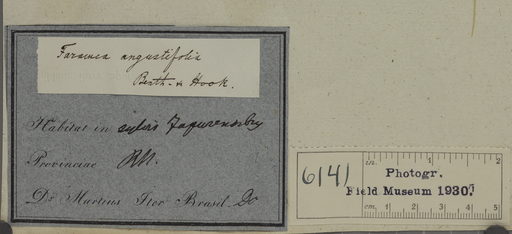 Faramea angustifolia
Benth. & Hook.
Habitat in sylvis Japurensibus
Provinciae RN.
Dr Martius Iter Brasil.
6141
in. 1 2
Photogr.
Field Museum 1930
cm. 1 2 3 4 5